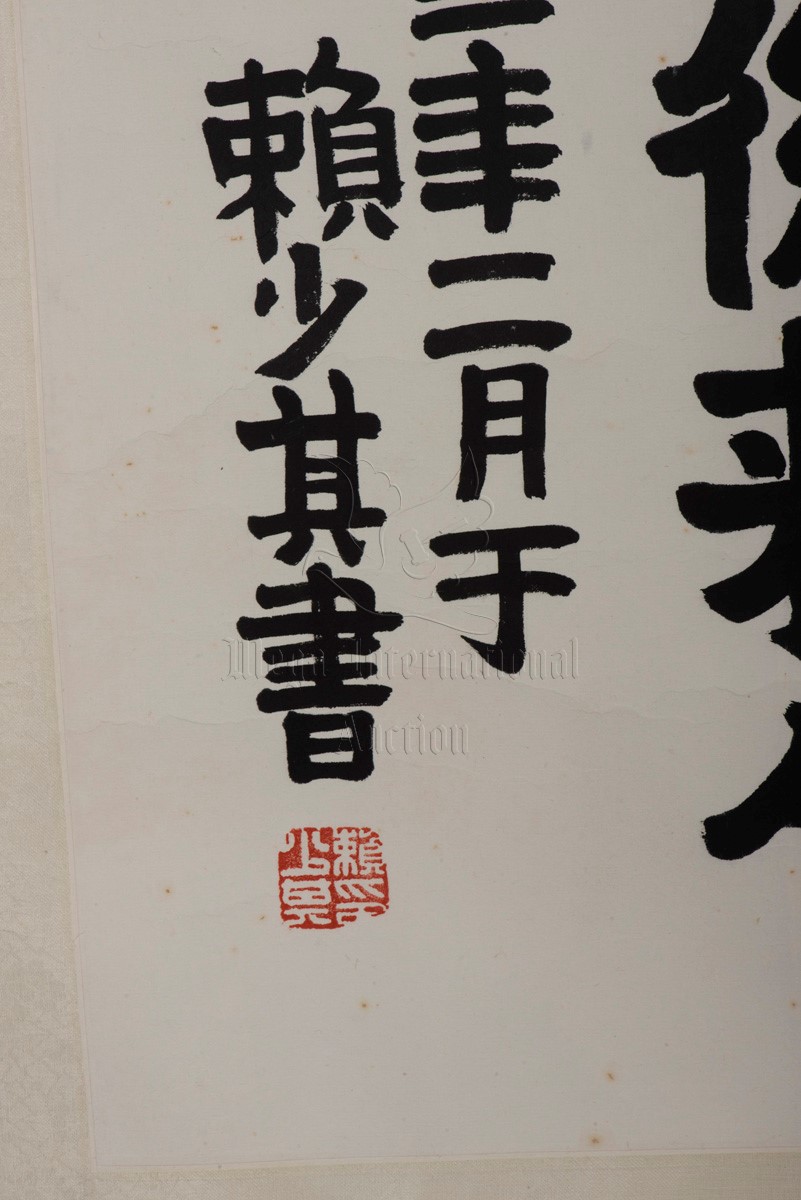 後來
年二月于
賴少其書
賴少其印
Mega International
Auction